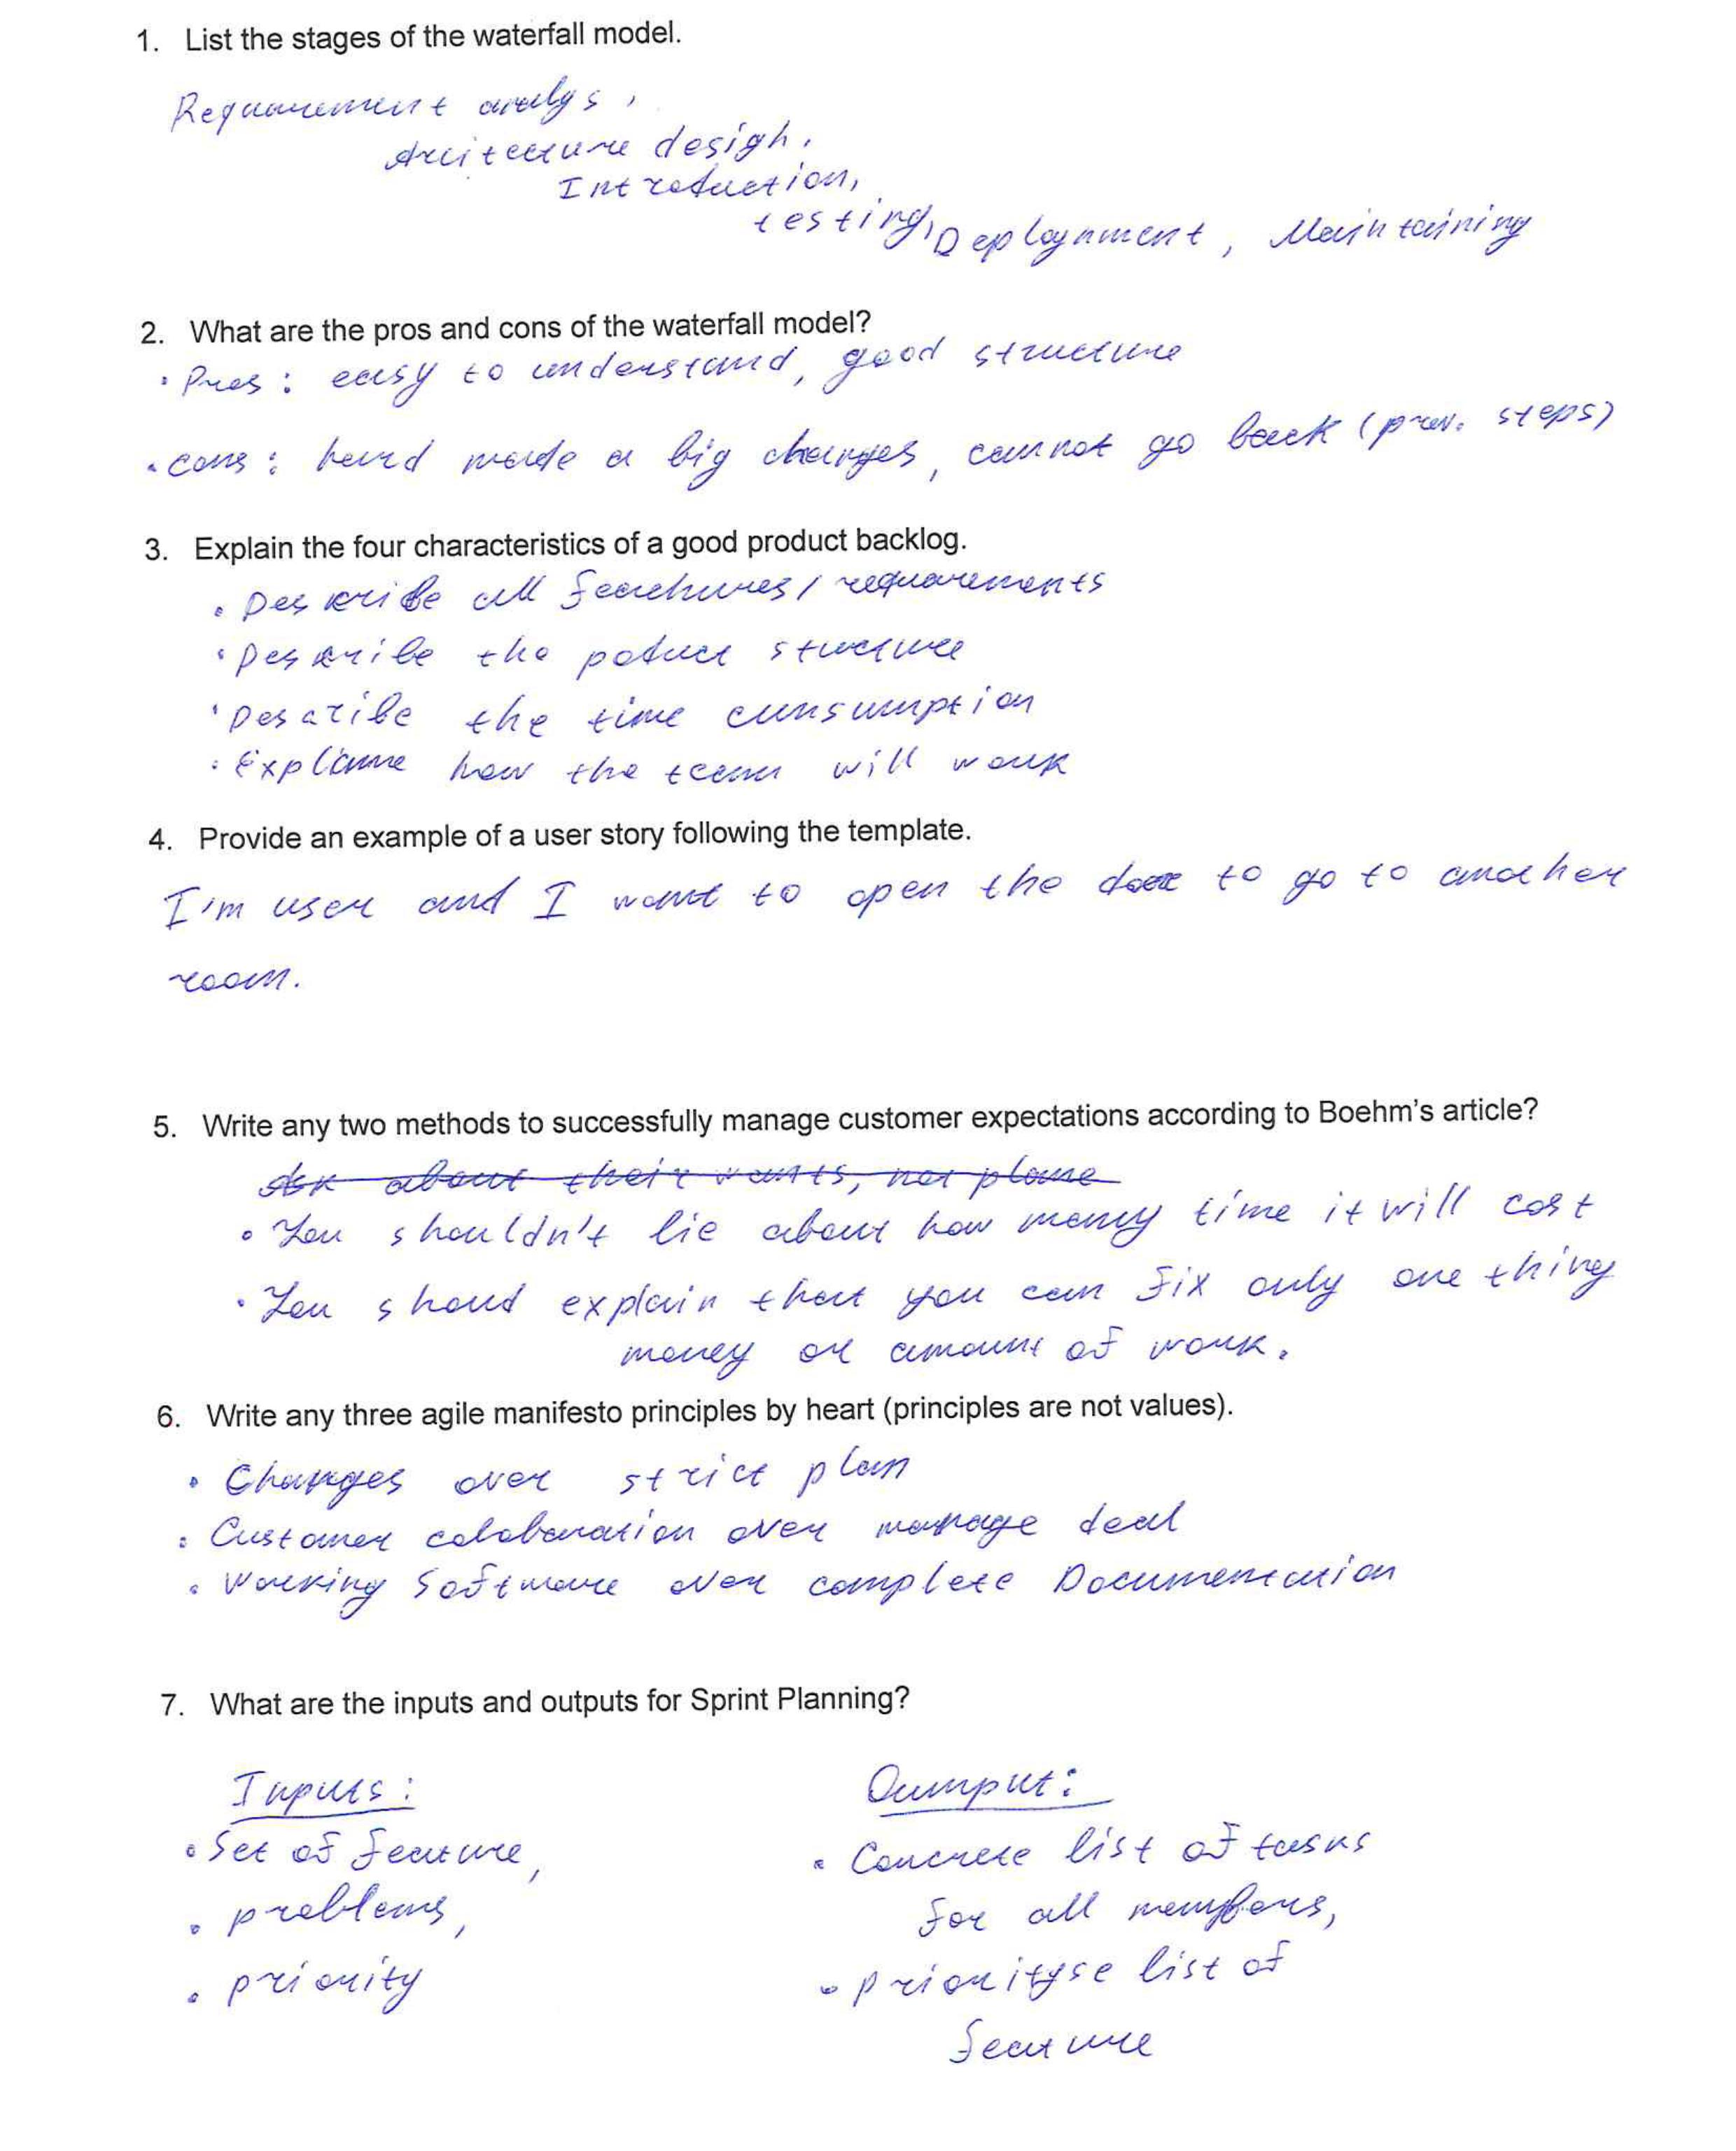 1. List the stages of the waterfall model.
Requarement analys,
Arcitecture desigh,
Introduction,
testing, Deploynment, Maintaining
2. What are the pros and cons of the waterfall model?
• Pros: easy to understand, good structure
• cons: hard made a big changes, cannot go back (prev. steps)
3. Explain the four characteristics of a good product backlog.
• Deskribe all feachures / requarements
• Deskribe the poduct structure
• Describe the time cunsumption
• Explane how the team will work
4. Provide an example of a user story following the template.
I'm user and I want to open the door to go to another
room.
5. Write any two methods to successfully manage customer expectations according to Boehm's article?
Ask about their wants, not plane
• You shouldn't lie about how many time it will cost
• You shoud explain that you can fix only one thing
money or amount of work.
6. Write any three agile manifesto principles by heart (principles are not values).
• Changes over strict plan
• Customer colaboration over manage deal
• Working Software over complete Documentation
7. What are the inputs and outputs for Sprint Planning?
Inputs:
• Set of feature,
• problems,
• priority
Oumput:
• Concrete list of tasks
for all members,
• priorityse list of
feature